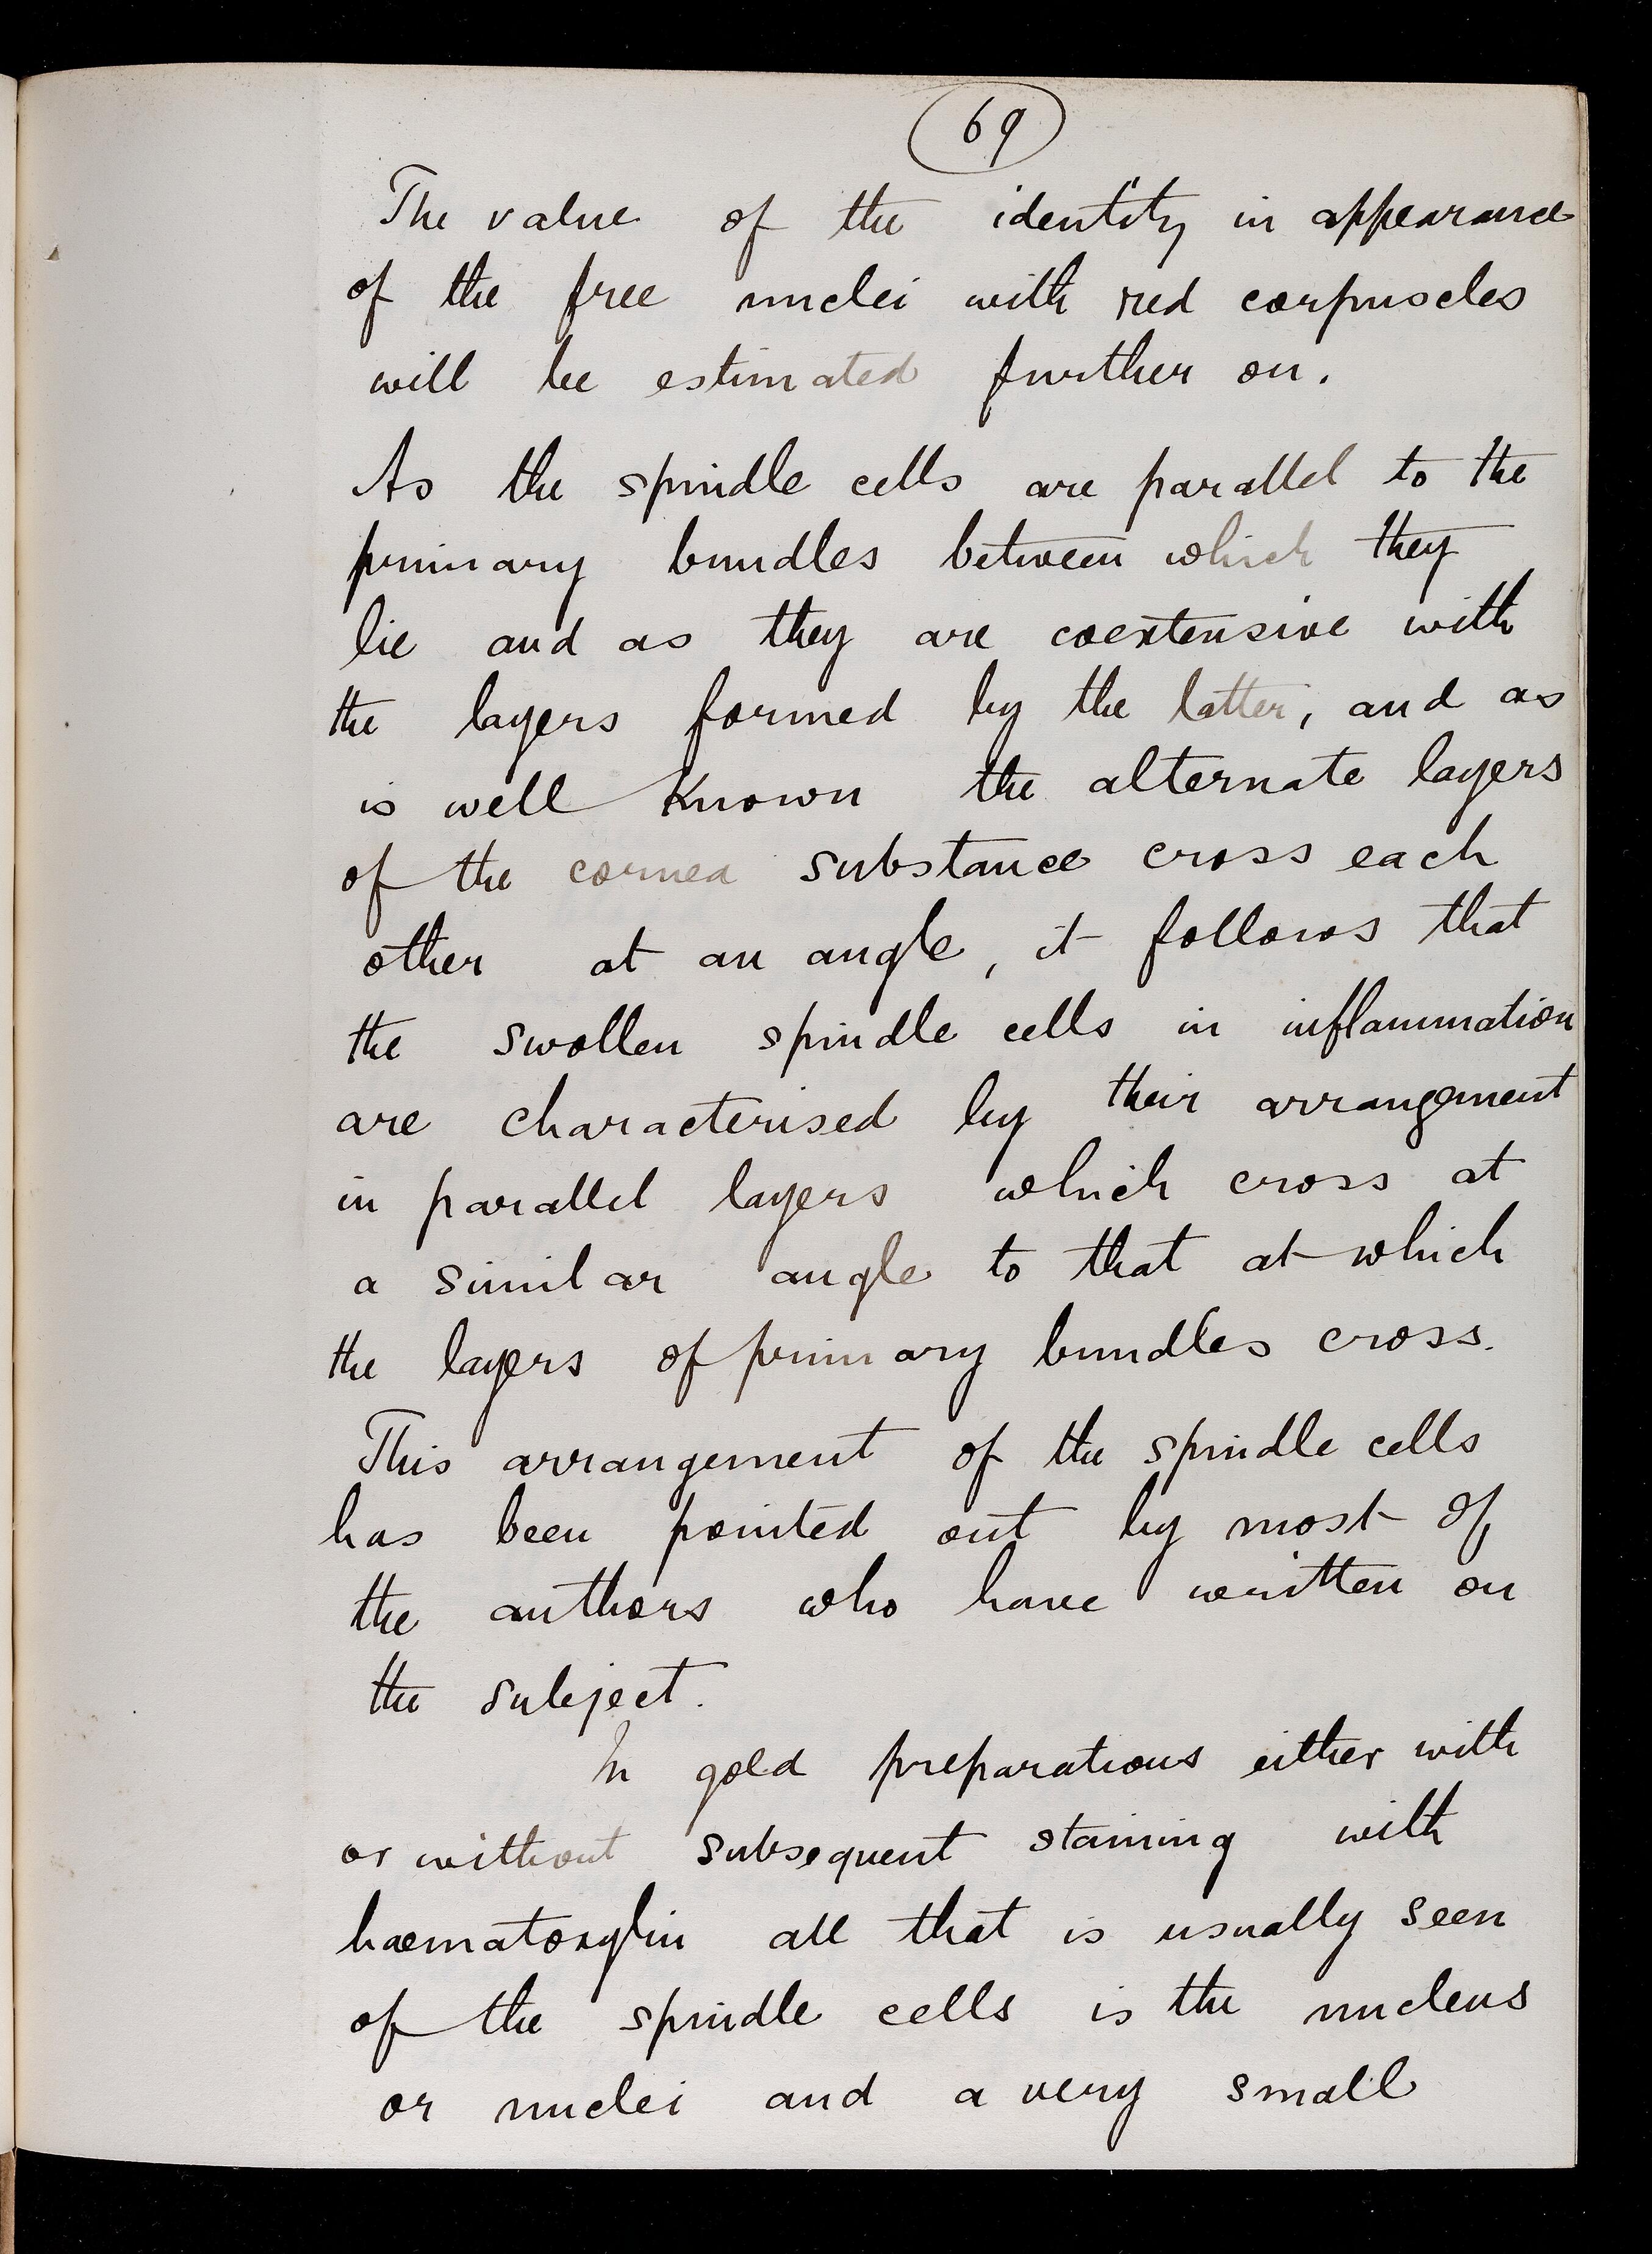 69
The value of the identity in appearance
of the free nuclei with red corpuscles
will be estimated further on.
As the spindle cells are parallel to the
primary bundles between which they
lie and as they are coextensive with
the layers formed by the latter, and as
is well known the alternate layers
of the cornea substance cross each
other at an angle, it follows that
the swollen spindle cells in inflammation
are characterised by their arrangement
in parallel layers which cross at
a similar angle to that at which
the layers of primary bundles cross.
This arrangement of the spindle cells
has been pointed out by most of
the authors who have written on
the subject.
In gold preparations either with
or without subsequent staining with
haematoxylin all that is usually seen
of the spindle cells is the nucleus
or nuclei and a very small